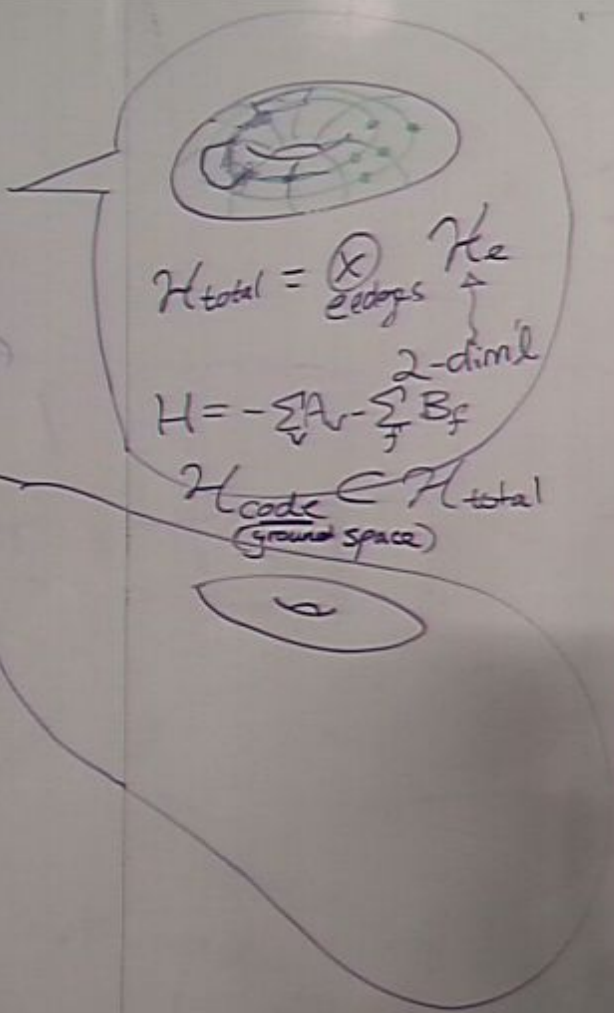 ℋtotal = ⊗ e∈edges ℋe
2-dim'l
H = -∑v Av - ∑f Bf
ℋcode ⊂ ℋtotal
(ground space)